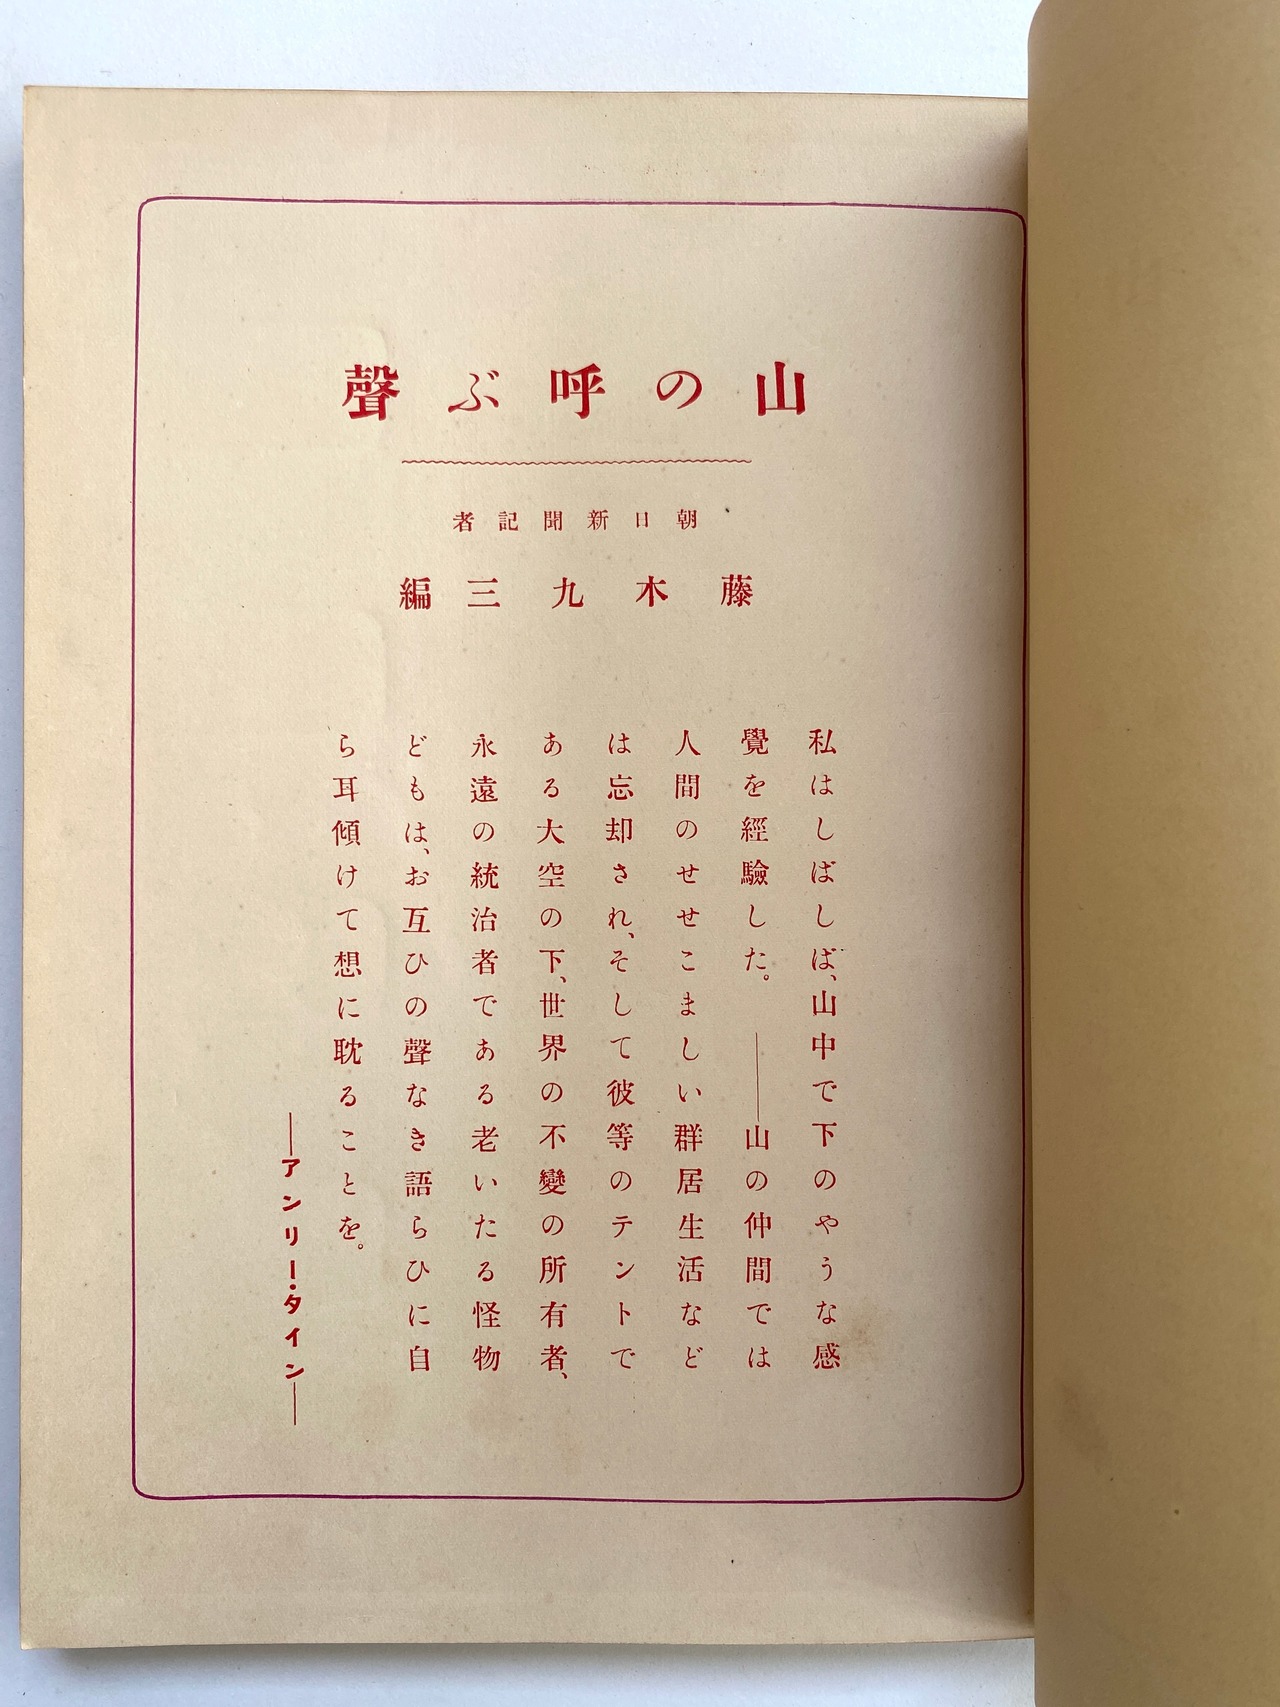 山の呼ぶ聲
朝日新聞記者
藤木九三編
私はしばしば、山中で下のやうな感
覺を經驗した。――山の仲間では
人間のせせこましい群居生活など
は忘却され、そして彼等のテントで
ある大空の下、世界の不變の所有者、
永遠の統治者である老いたる怪物
どもは、お互ひの聲なき語らひに自
ら耳傾けて想に耽ることを。
―アンリー・タイン―